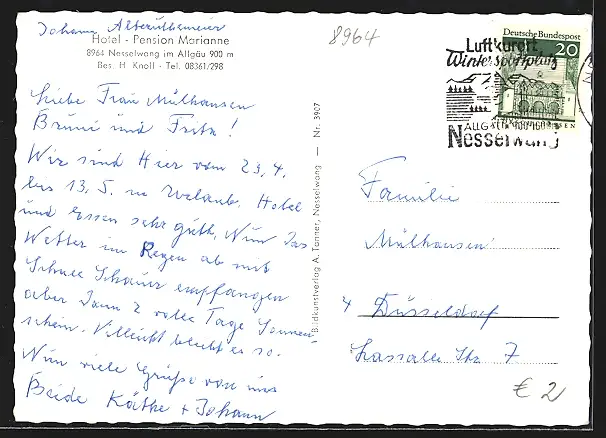 Johann
Hotel - Pension Marianne
8964 Nesselwang im Allgäu 900 m
Bes. H. Knoll - Tel. 08361/298
Liebe Frau Mülhausen
Bruni und Fritz!
Wir sind Hier vom 23.4.
bis 13.5. in Urlaub. Hotel
und Essen sehr guth. Nun Das
Wetter im Regen ab mit
Schnee Schauer empfangen
aber Dann 2 volle Tage Sonnen
schein. Villeicht bleibt es so.
Nun viele Grüße von uns
Beide Käthe + Johann
Bildkunstverlag A. Tanner, Nesselwang — Nr. 3907
8964
Luftkurort
Wintersportplatz
ALLGÄU 900-1600 m
Nesselwang
Deutsche Bundespost
20
Familie
Mülhausen
4 Düsseldorf
Lassalle Str. 7
€ 2